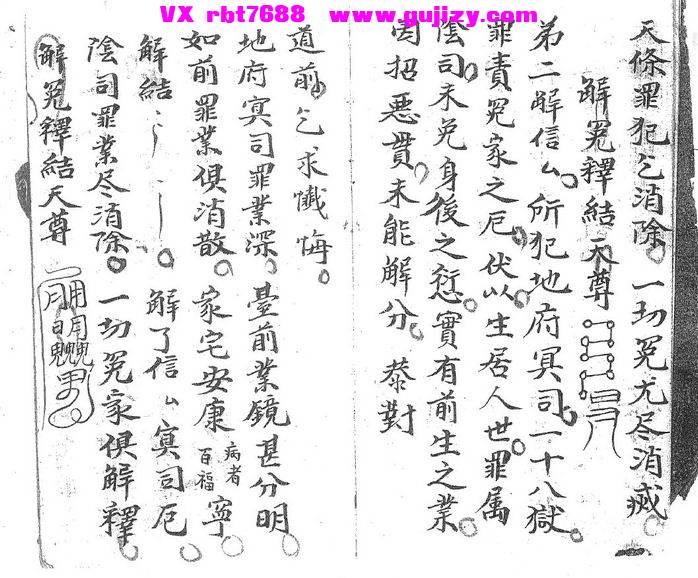 VX rbt7688 www.gujizy.com
天條罪犯乞消除。一切冤尤尽消滅。
解冤釋結天尊
第二解信厶。所犯地府冥司。一十八獄。
罪責冤家之厄。伏以生居人世。罪属
陰司。未免身後之愆。實有前生之業。
因招惡貫。未能解分。恭對
道前。乞求懺悔。
地府冥司罪業深。臺前業鏡甚分明。
如前罪業俱消散。家宅安康百福寧。
病者
解結 解了信厶冥司厄。
陰司罪業尽消除。一切冤家俱解釋。
解冤釋結天尊